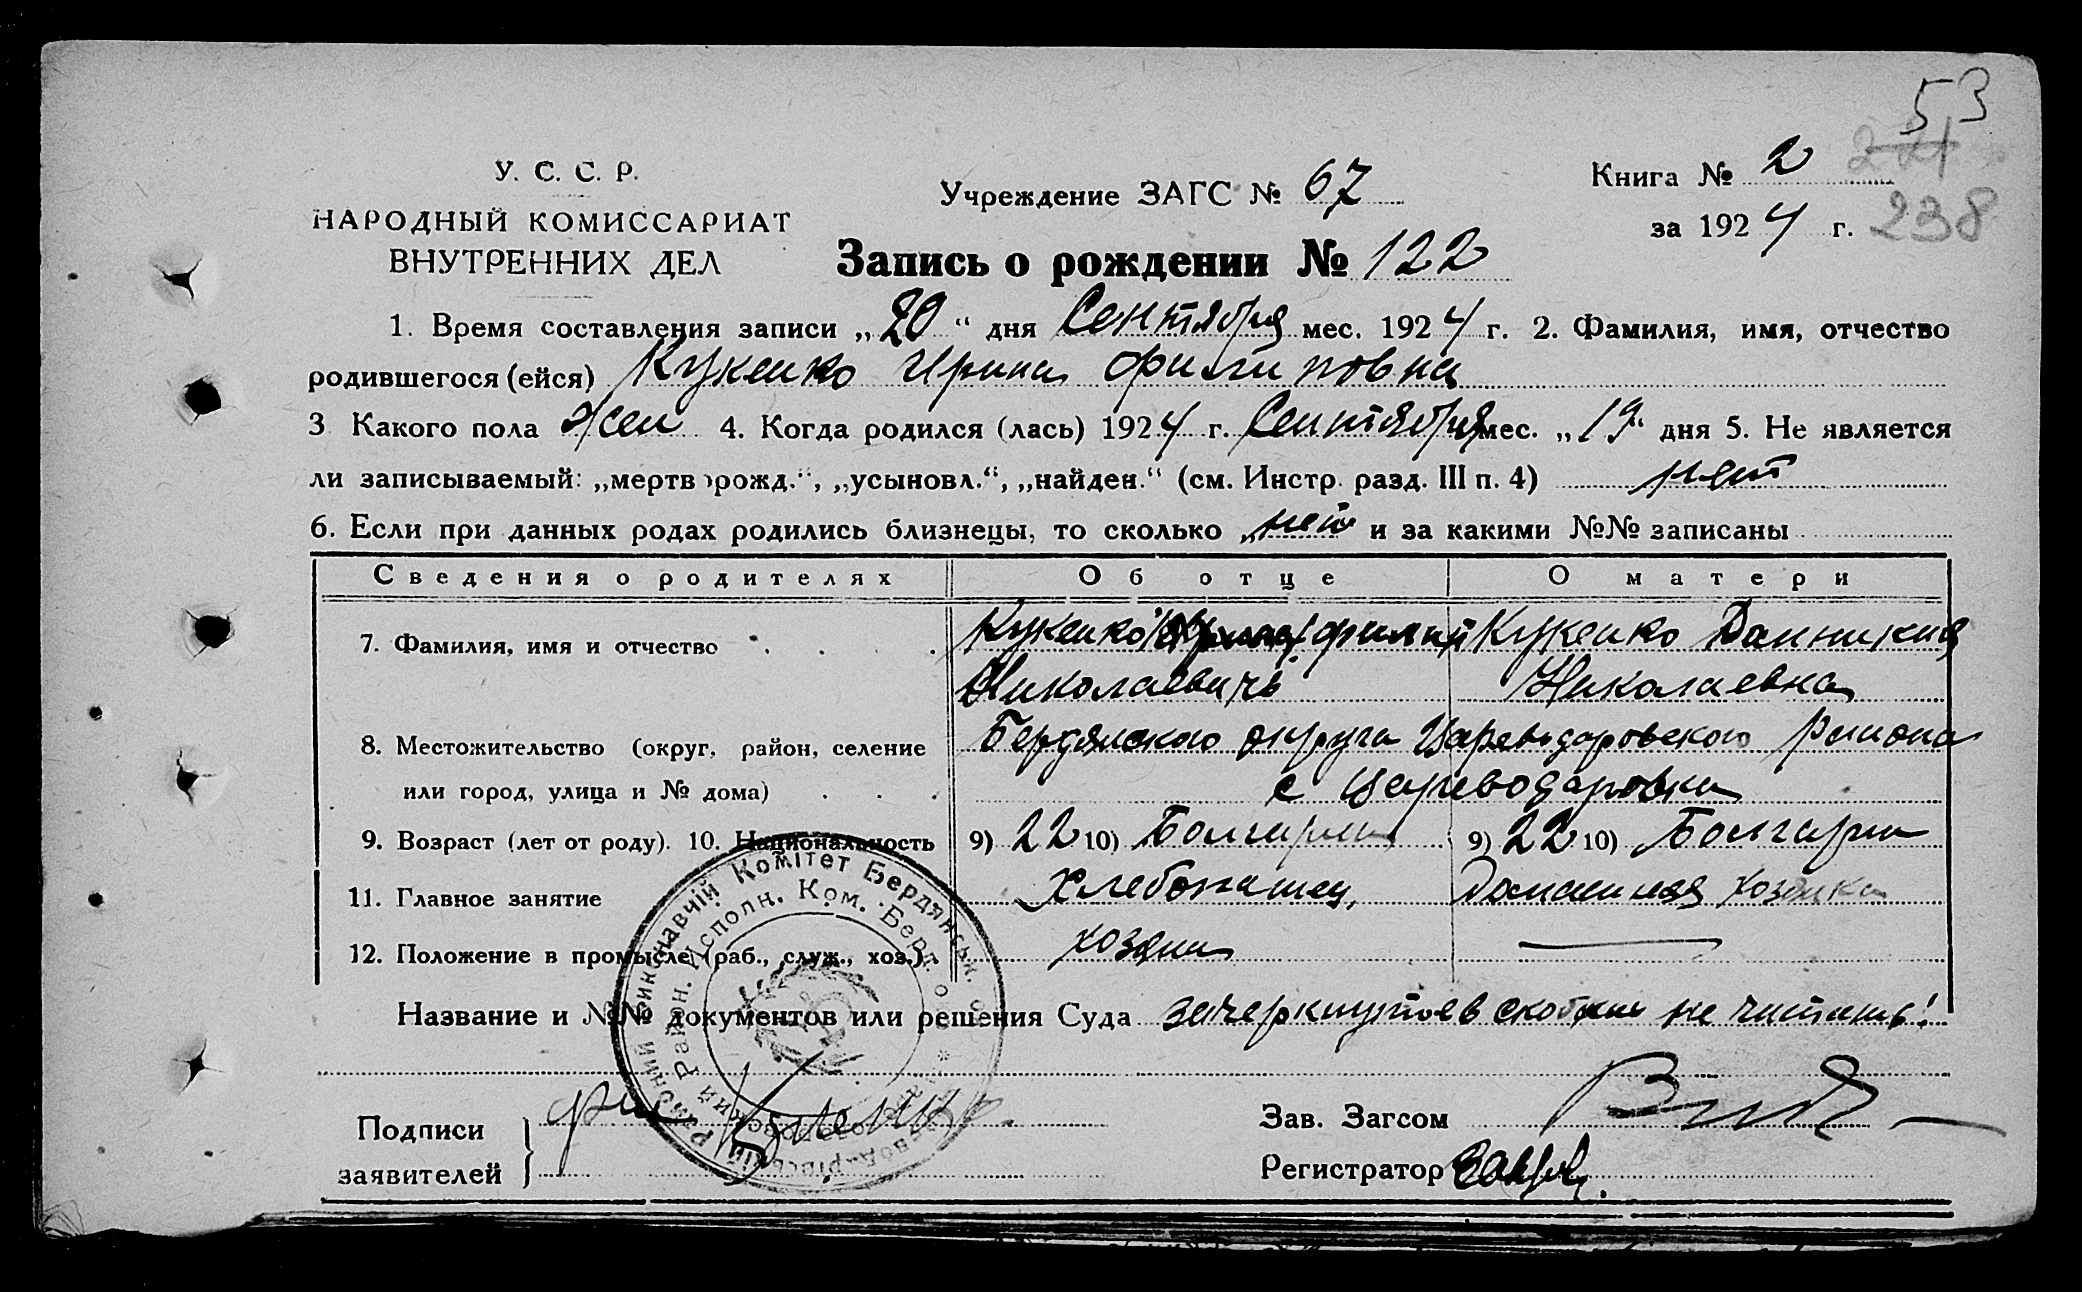 53
221
У. С. С. Р.
НАРОДНЫЙ КОМИССАРИАТ
ВНУТРЕННИХ ДЕЛ
Учреждение ЗАГС № 67
Книга № 2
за 1924 г. 238
Запись о рождении № 122
1. Время составления записи „20“ дня Сентября мес. 1924 г. 2. Фамилия, имя, отчество
родившегося (ейся) Кукенко Ирина Филиповна
3 Какого пола жен 4. Когда родился (лась) 1924 г. Сентября мес. „19“ дня 5. Не является
ли записываемый: „мертв орожд.“, „усыновл.“, „найден.“ (см. Инстр. разд. III п. 4) нет
6. Если при данных родах родились близнецы, то сколько „нет и за какими №№ записаны
Сведения о родителях Об отце О матери
7. Фамилия, имя и отчество Кукенко Филип Кукенко
Николаевичъ Николаевна
8. Местожительство (округ, район, селение Бердянского округа Цареводаровского района
или город, улица и № дома) с Цареводаровка
9. Возраст (лет от роду). 10. Национальность 9) 22 10) Болгари 9) 22 10) Болгари
11. Главное занятие Хлебопашец, Домашняя хозяйка
12. Положение в промысле (раб., служ., хоз.) хозяин
Название и №№ документов или решения Суда зачеркнутое в скобки не читать!
Подписи
заявителей
Зав. Загсом
Регистратор
Районний Виконавчій Комітет Бердянськ. о
Район. Исполн. Ком. Берд. о